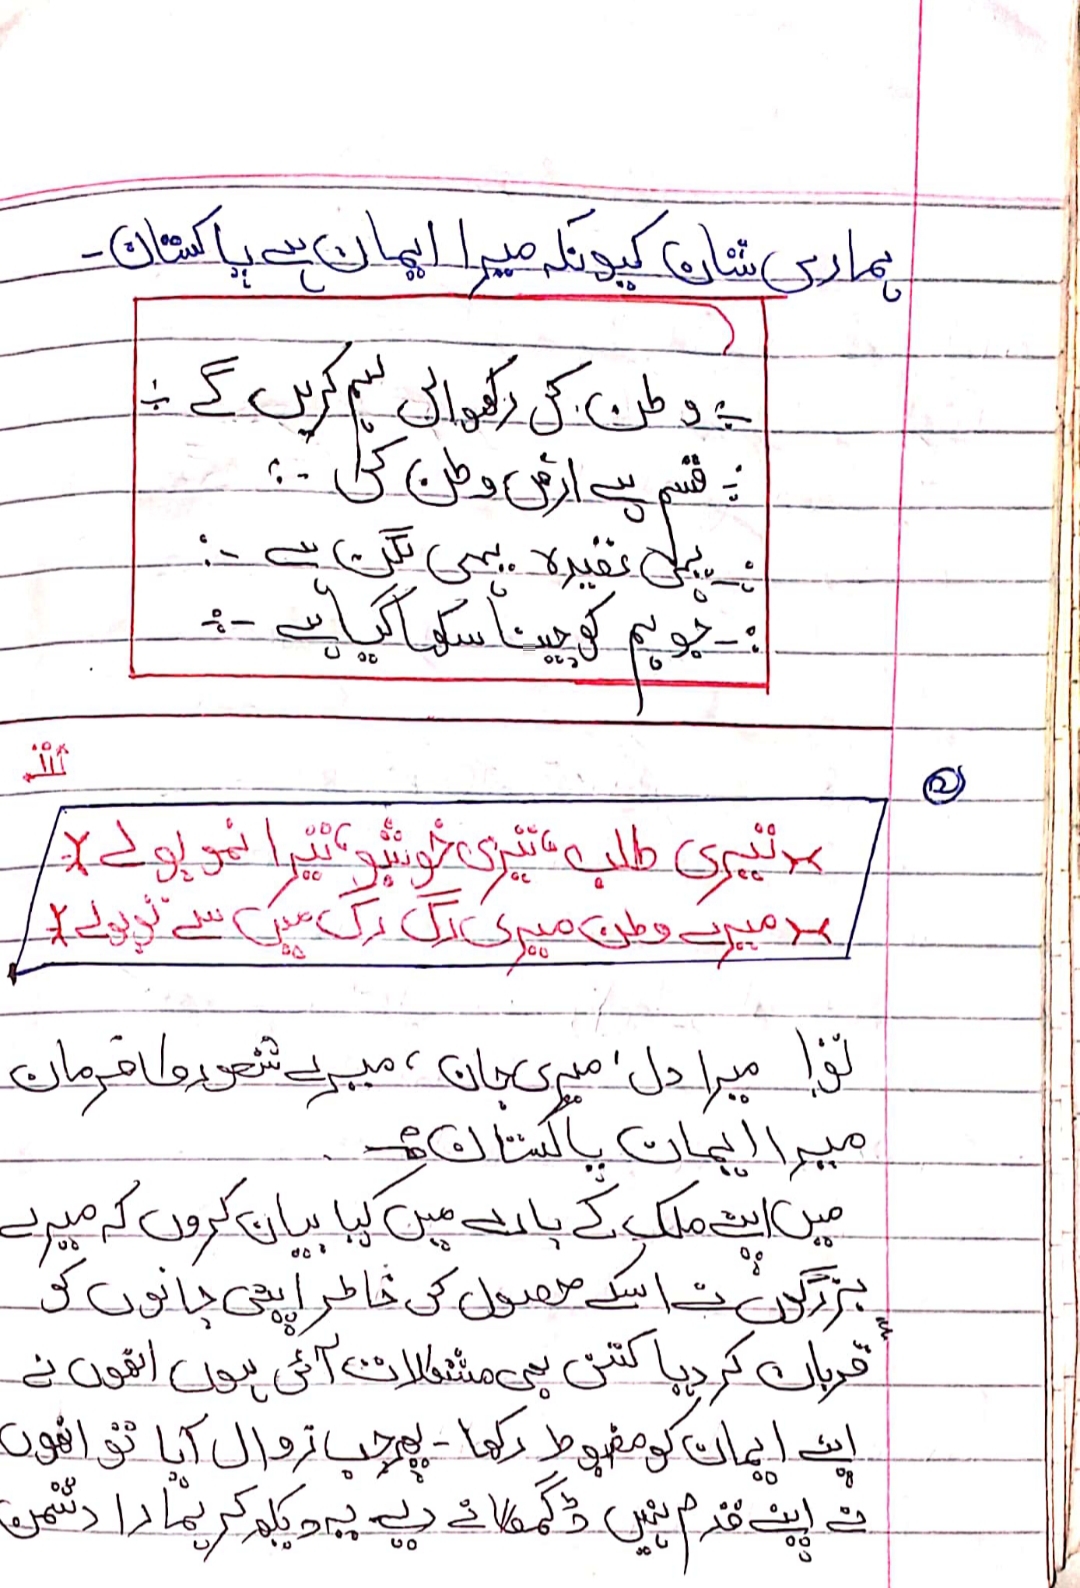 ہماری شان کیونکہ میرا ایمان ہے پاکستان۔
وطن کی رکھوالی ہم کریں گے
قسم ہے ارض وطن کی
یہی عقیدہ یہی لگن ہے
جو ہم کو جینا سکھا گیا ہے
②
تیری طلب، تیری خوشبو، تیرا نمو بولے
میرے وطن میری رگ رگ میں سے تو بولے
میرا دل، میری جان، میرے شعور کا فرمان
میرا ایمان پاکستان ہے۔
میں اپنے ملک کے بارے میں کیا بیان کروں کہ میرے
بزرگوں نے اسکے حصول کی خاطر اپنی جانوں کو
قربان کر دیا کتنی بھی مشکلات آئی ہوں انھوں نے
اپنے ایمان کو مضبوط رکھا - پھر جب زوال آیا تو انھوں
نے اپنے قدم نہیں ڈگمگانے دیے یہ دیکھ کر ہمارا دشمن